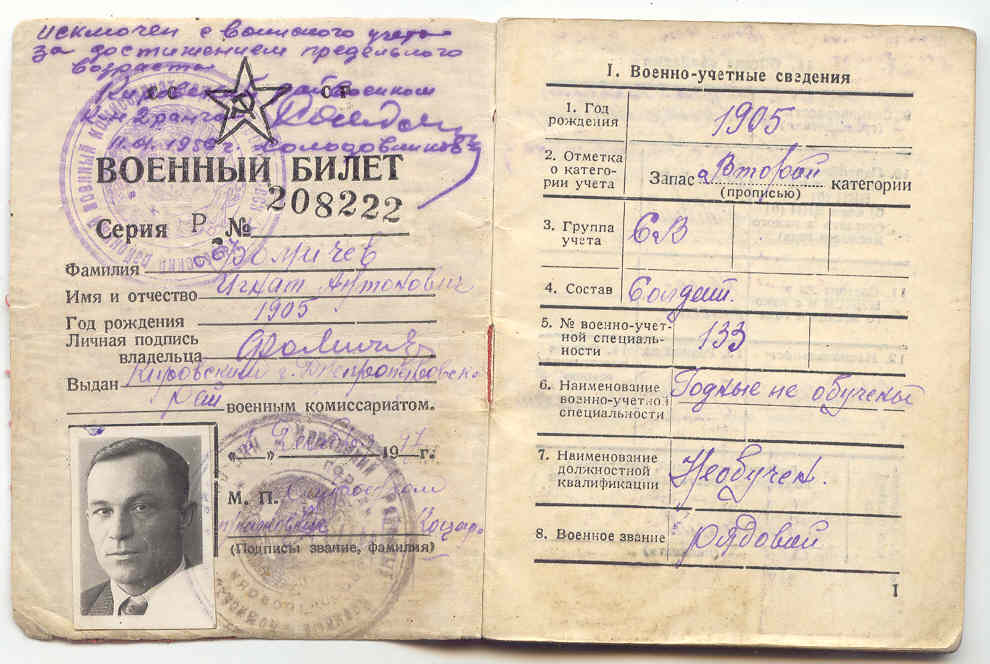 исключен с воинского учета
за достижением предельного
возраста
Кировский райвоенком
СС СР
ВОЕННЫЙ БИЛЕТ
208222
Серия Р №
Фамилия Фомичев
Имя и отчество Игнат Антонович
Год рождения 1905
Личная подпись
владельца Фомичев
Выдан Кировский г. Днепропетровска
Рай военным комиссариатом.
„ “ 19 47 г.
М. П.
(Подписы звание, фамилия)
I. Военно-учетные сведения
1. Год
рождения
1905
2. Отметка
о катего-
рии учета
Запас Второй категории
(прописью)
3. Группа
учета
СВ
4. Состав Солдат.
5. № военно-учет-
ной специаль-
ности
133
6. Наименование
военно-учетной
специальности
Годные не обучены
7. Наименование
должностной
квалификации
Необучен.
8. Военное звание рядовой
1